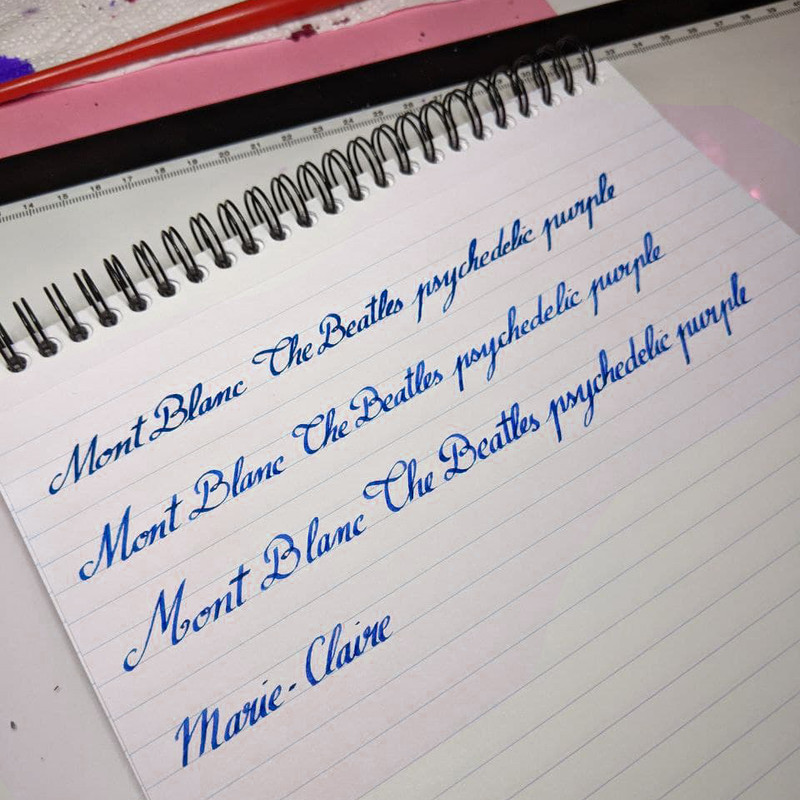 14 15 16 17 18 19 20 21 22 23 24 25 26 27 33 34 35 36 37 38 39
Mont Blanc The Beatles psychedelic purple
Mont Blanc The Beatles psychedelic purple
Mont Blanc The Beatles psychedelic purple
Marie-Claire